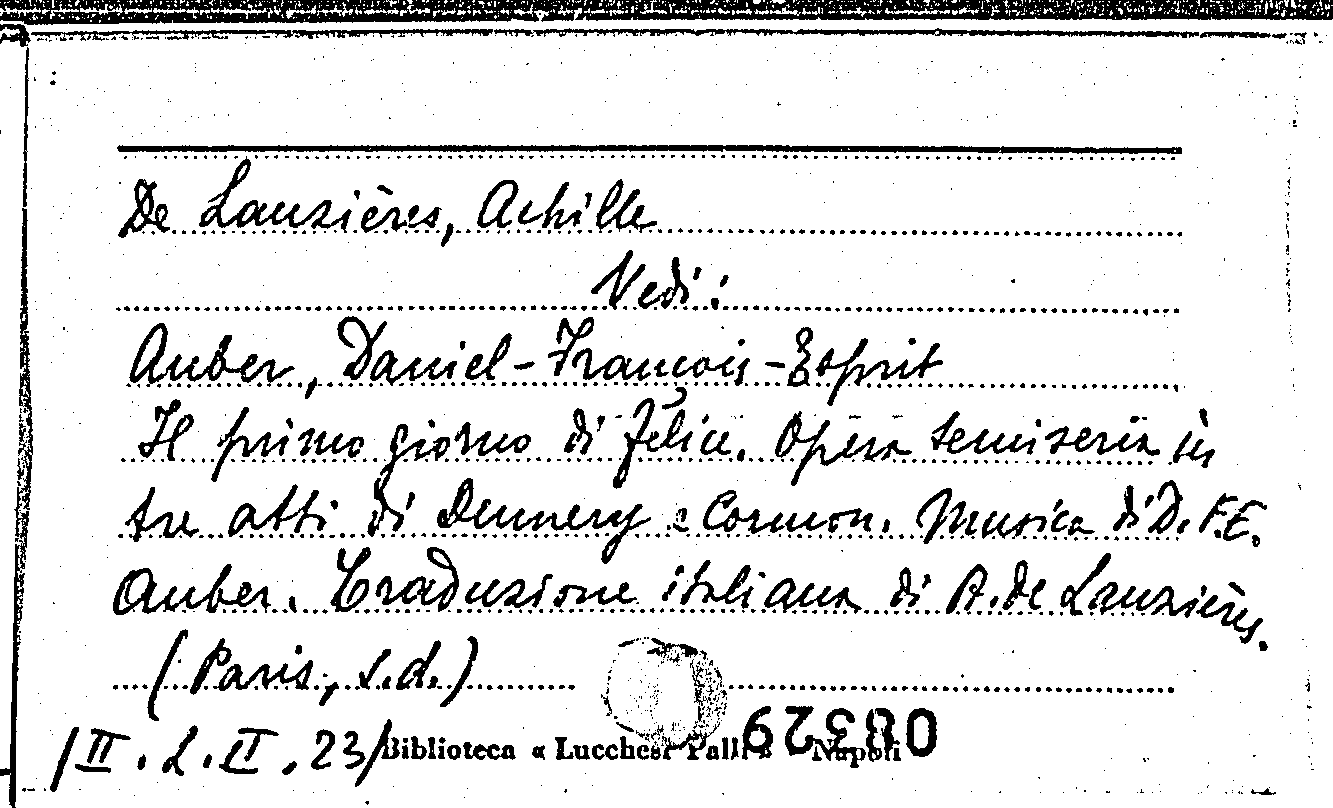 De Lauzières, Achille
Vedi:
Auber, Daniel-François-Esprit
Il primo giorno di felice. Opera semiseria in
tre atti di Dennery e Cormon. Musica di D.F.E.
Auber. Traduzione italiana di A. de Lauzières.
(Paris, s.d.)
/II.L.II.23/ Biblioteca « Lucchesi Palli » Napoli
08329